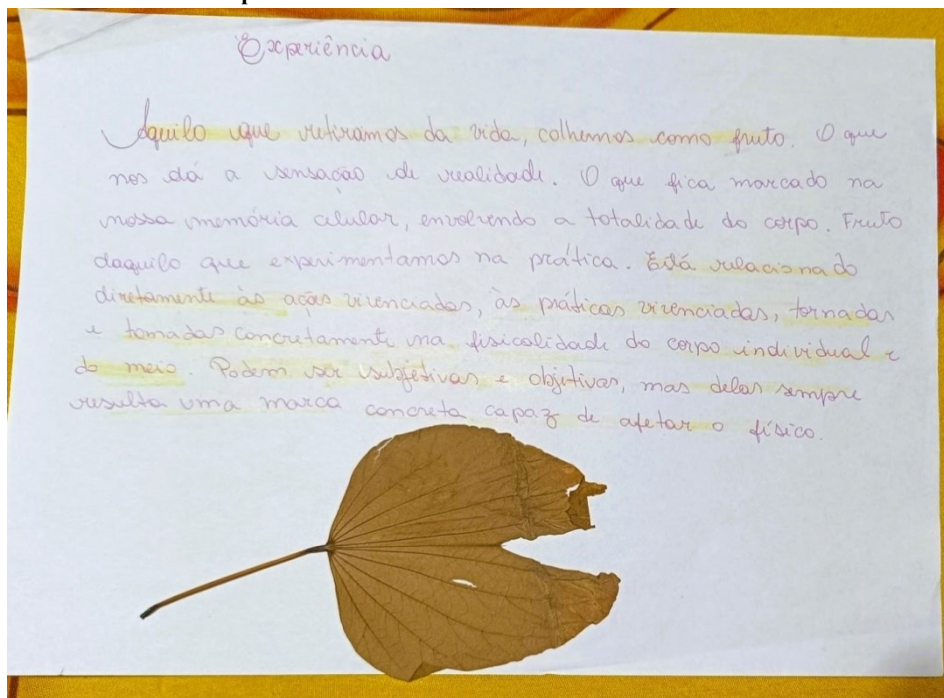 Experiência
Aquilo que retiramos da vida, colhemos como fruto. O que
nos dá a sensação de realidade. O que fica marcado na
nossa memória celular, envolvendo a totalidade do corpo. Fruto
daquilo que experimentamos na prática. Está relacionado
diretamente às ações vivenciadas, às práticas vivenciadas, tornadas
e tomadas concretamente na fisicalidade do corpo individual e
do meio. Podem ser subjetivas e objetivas, mas delas sempre
resulta uma marca concreta capaz de afetar o físico.